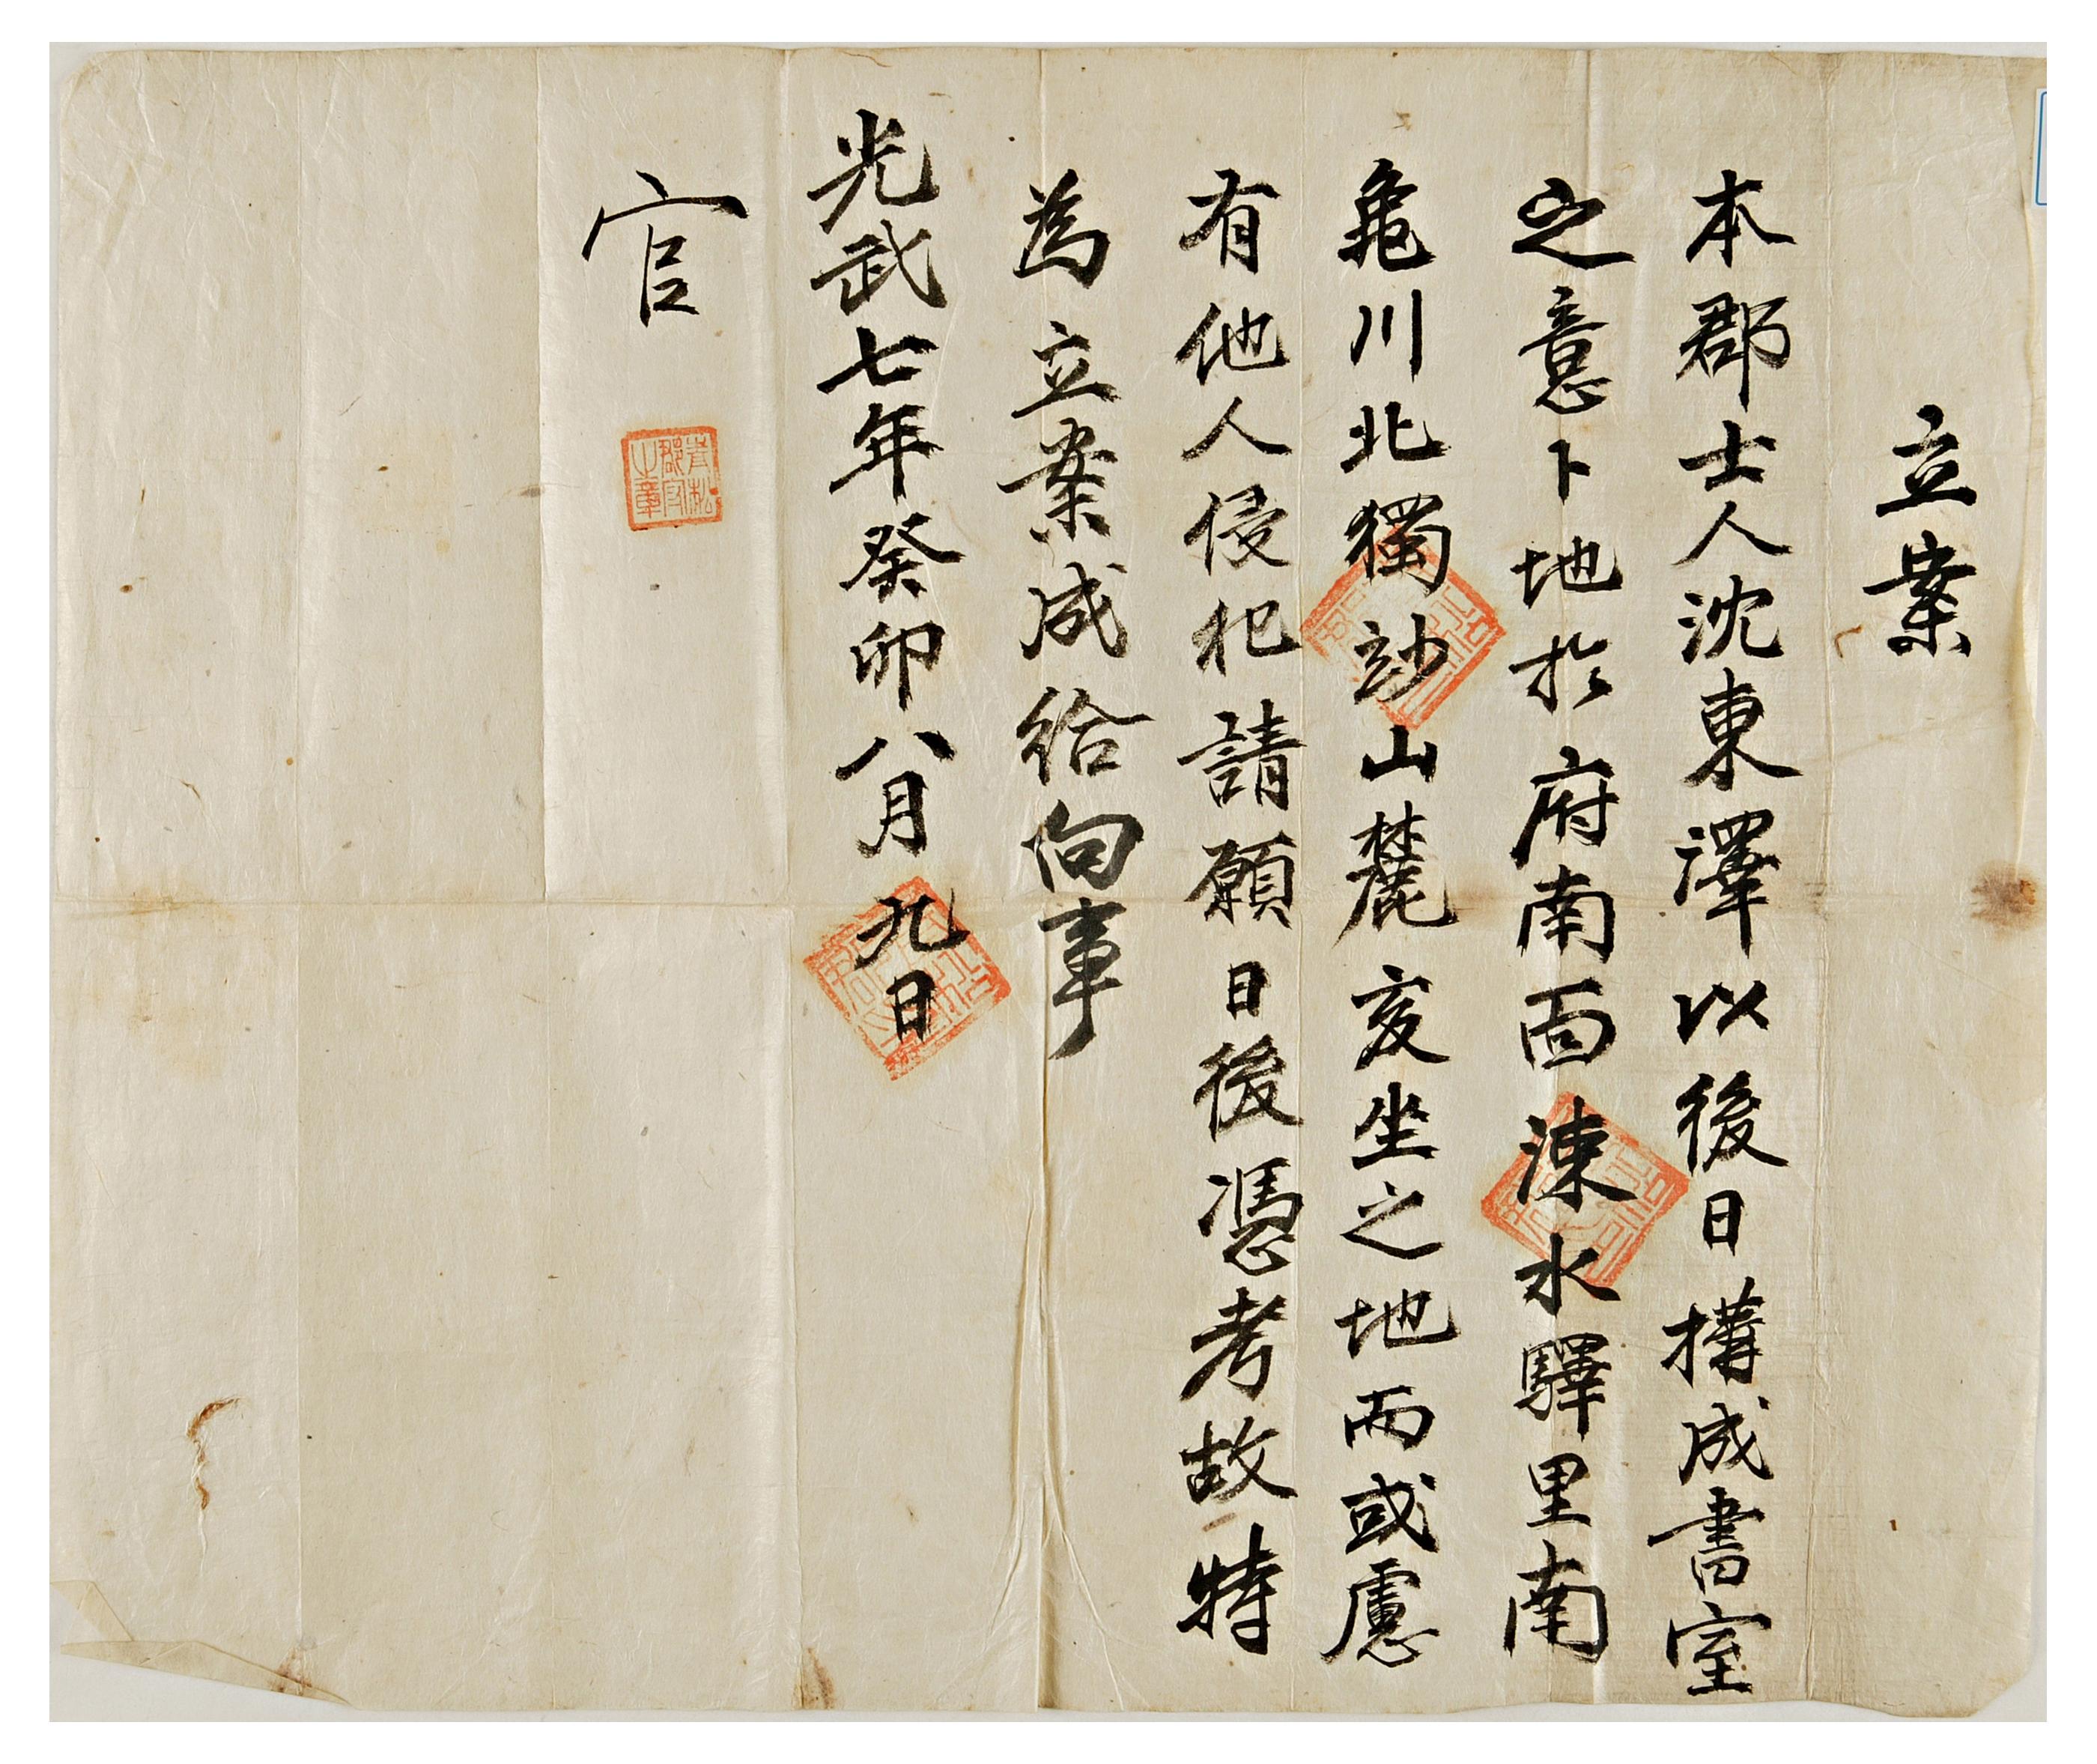 立案
本郡士人沈東澤以後日構成書室
之意卜地於府南面涑水驛里南
龜川北獨玅山麓亥坐之地而或慮
有他人侵犯請願日後憑考故特
爲立案成給向事
光武七年癸卯八月九日
官
青松郡守之章